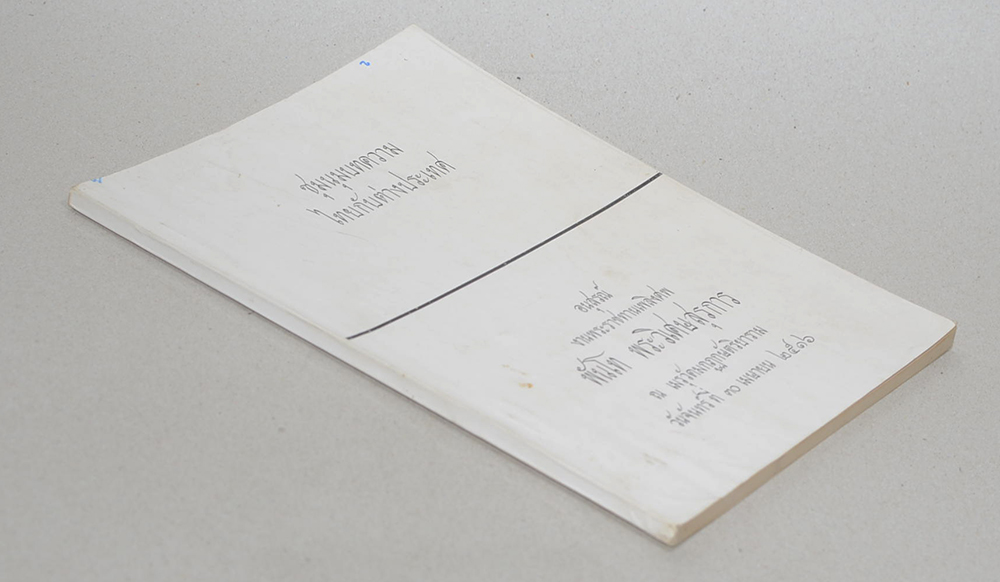 ชุมนุมบทความ
ไทยกับต่างประเทศ
อนุสรณ์
งานพระราชทานเพลิงศพ
พันโท พระวิเศษสรุการ
ณ เมรุวัดมกุฏกษัตริยาราม
วันจันทร์ ที่ ๓๐ เมษายน ๒๕๑๖